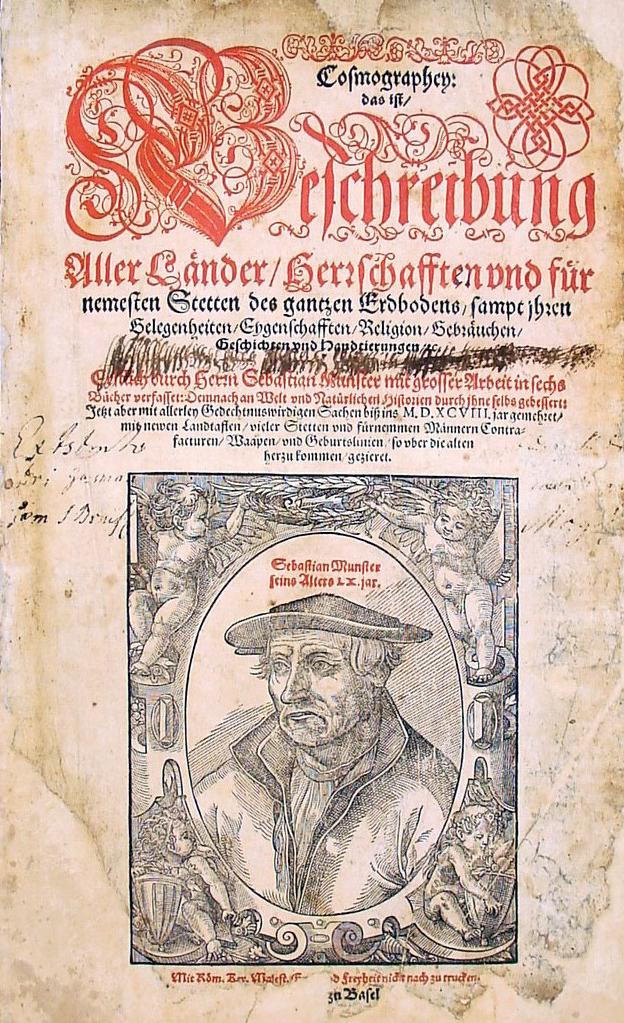 Cosmographey:
das ist/
Beschreibung
Aller Länder/ Herrschafften vnd für
nemesten Stetten des gantzen Erdbodens/ sampt jhren
Gelegenheiten/ Eygenschafften/ Religion/ Gebräuchen/
Geschichten vnd Handtierungen/ ꝛc.
durch Herrn Sebastian Munster mit grosser Arbeit in sechs
Bücher verfasset: Demnach an Welt vnd Natürlichen Historien durch jhne selbs gebessert:
Jetzt aber mit allerley Gedechtnuswirdigen Sachen biß ins M. D. XCVIII. jar gemehret/
mit newen Landtafflen/ vieler Stetten vnd fürnemmen Männern Contra-
facturen/ Waapen/ vnd Geburtslinien/ so vber die alten
herzu kommen/ gezieret.
Sebastian Munster
seins Alters LX. jar.
Mit Röm. Key. Maiest. Freyheit nicht nach zu trucken.
zu Basel